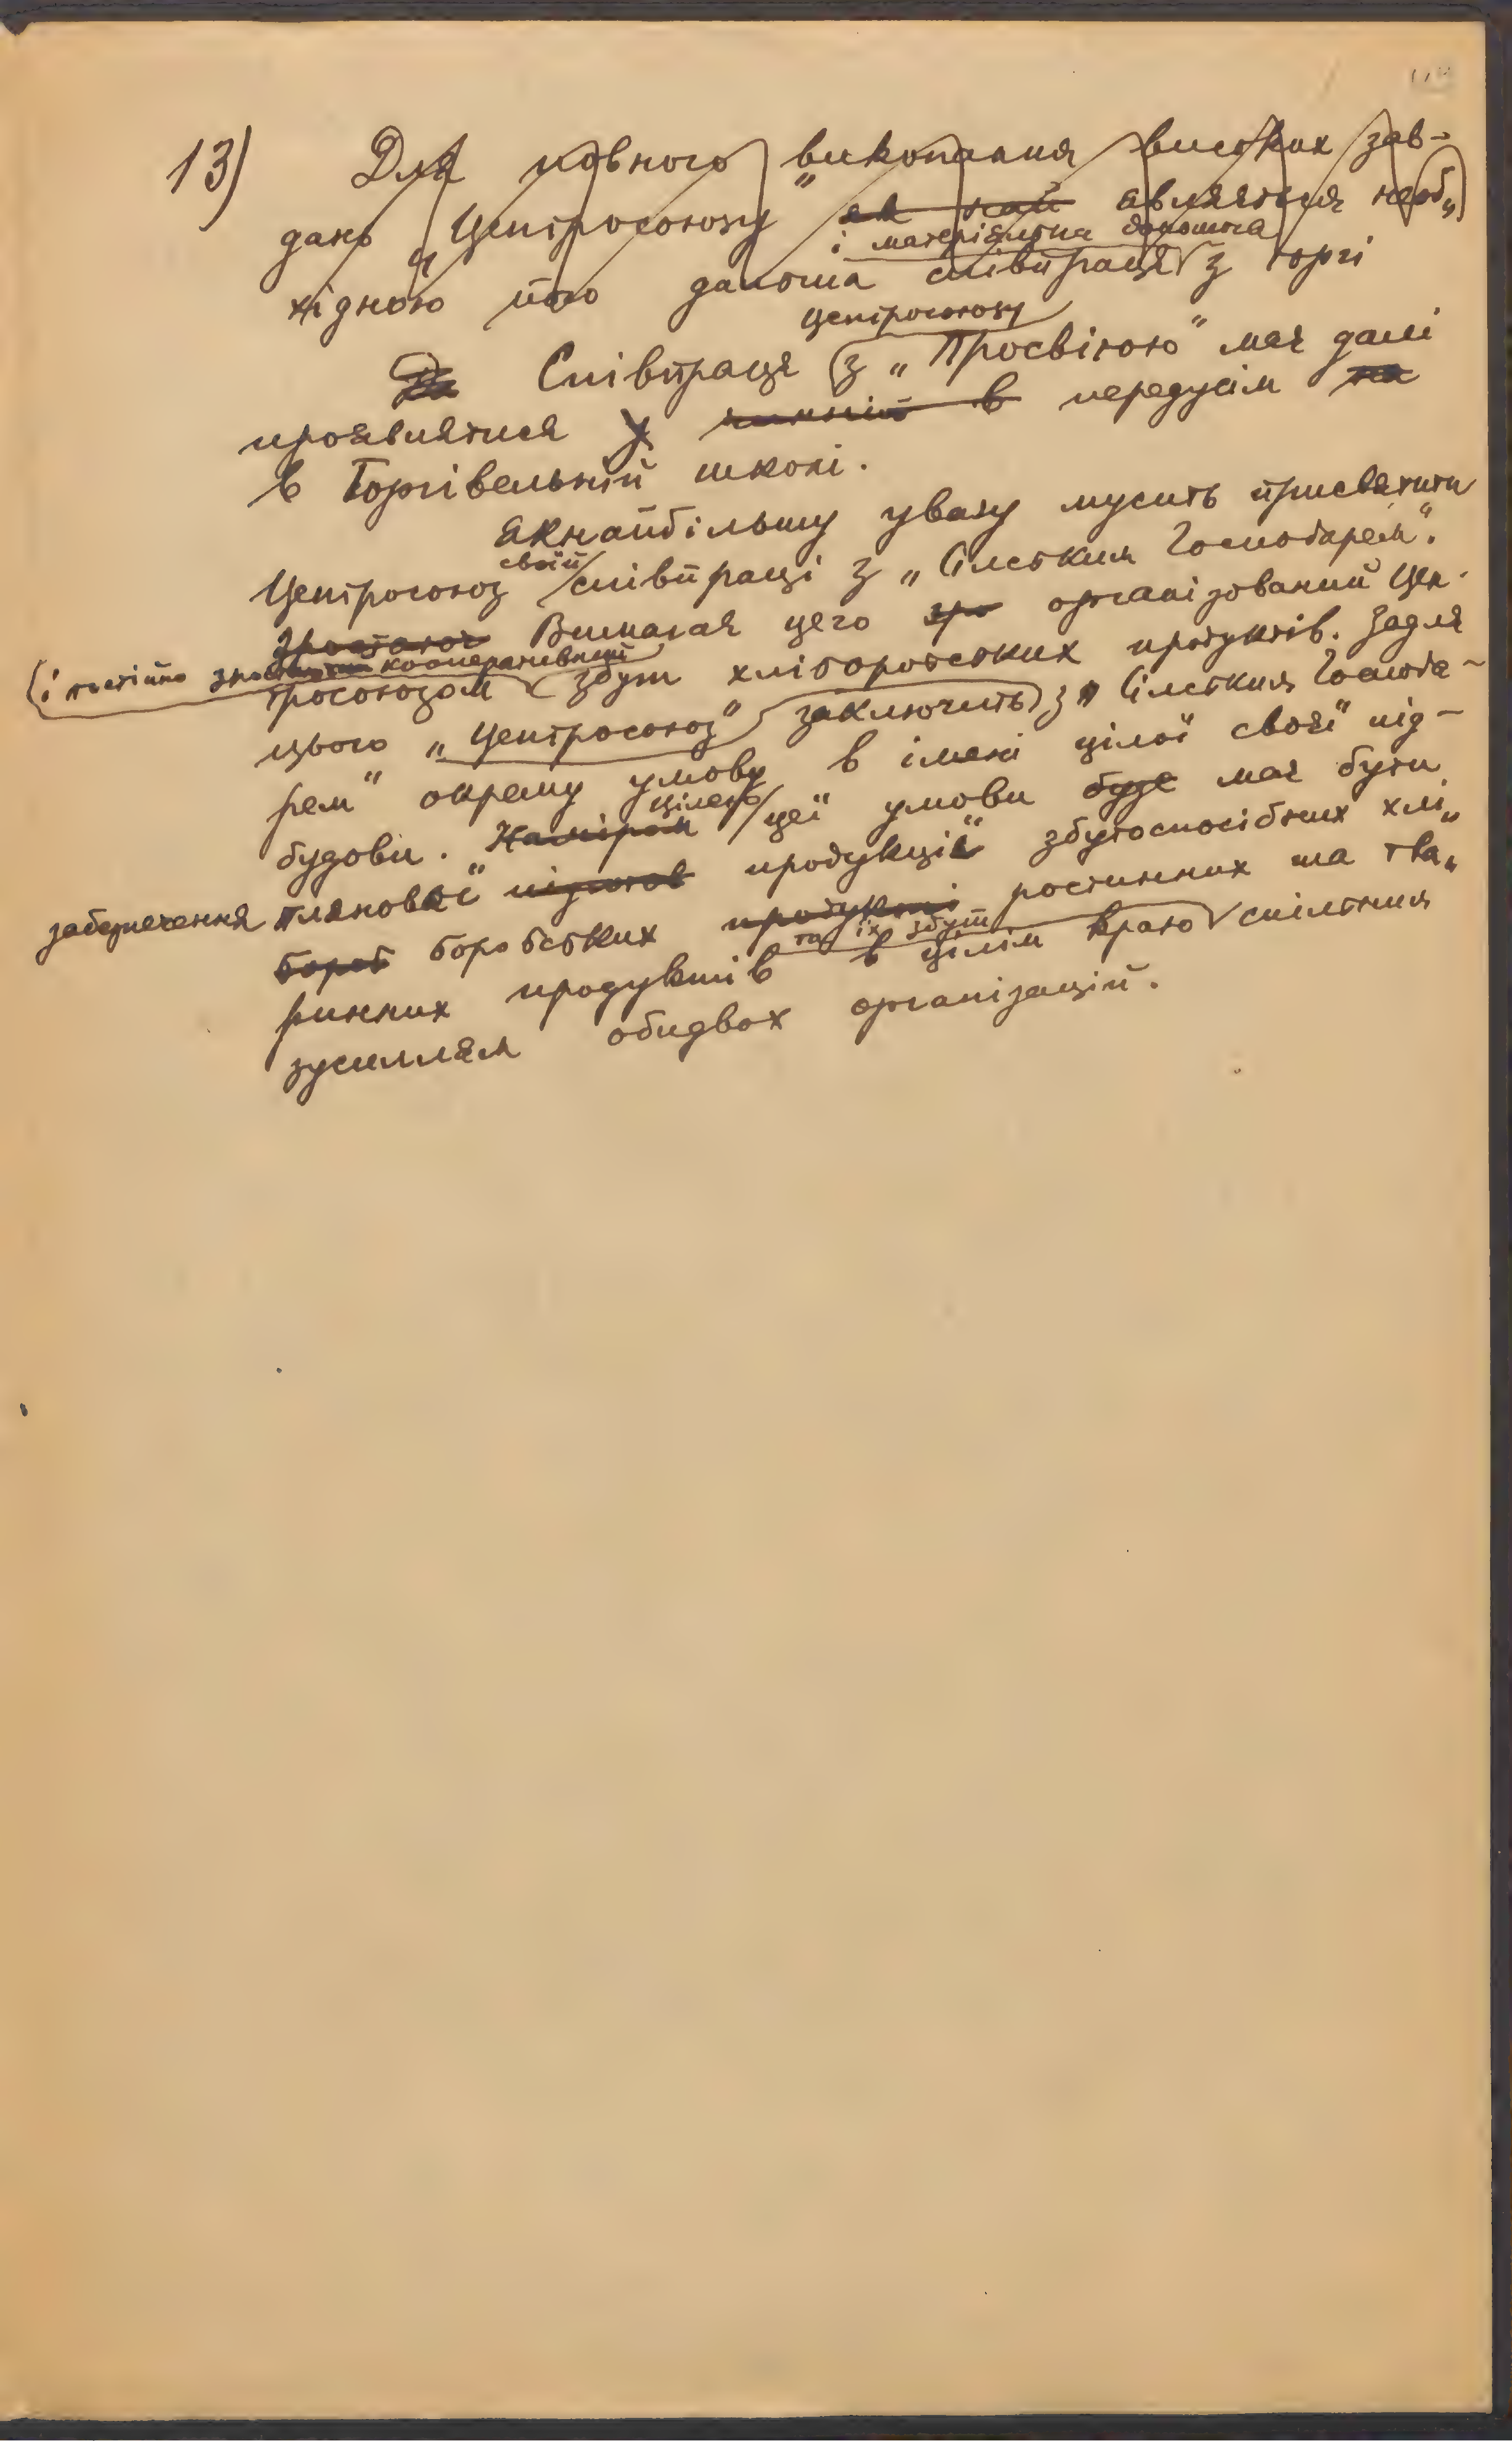 13) Для повного виконання високих зав-
дань Центросоюзу являється необ„
і матеріяльна допомога
хідною його далоша співпраця з торгі
центросоюзу
Співпраця з „Просвітою" має далі
проявлятися у передусім
в Торгівельній школі.
Якнайбільшу увагу мусить присвятити
своїй
Центросоюз співпраці з „Сільським Господарем".
Вимагає цего організований Цен-
і постійно кооперативний
тросоюзом збут хліборобських продуктів. Задля
цього „Центросоюз" заключить з „Сільським Господа-
рем" окрему умову в імені цілої своєї під-
будови. цілею цеї умови має бути
забезпечення „плянової продукції" збутоспосібних хлі„
боробських ростинних та тва„
та їх збут
ринних продуктів в цілім краю спільним
зусиллям обидвох організацій.